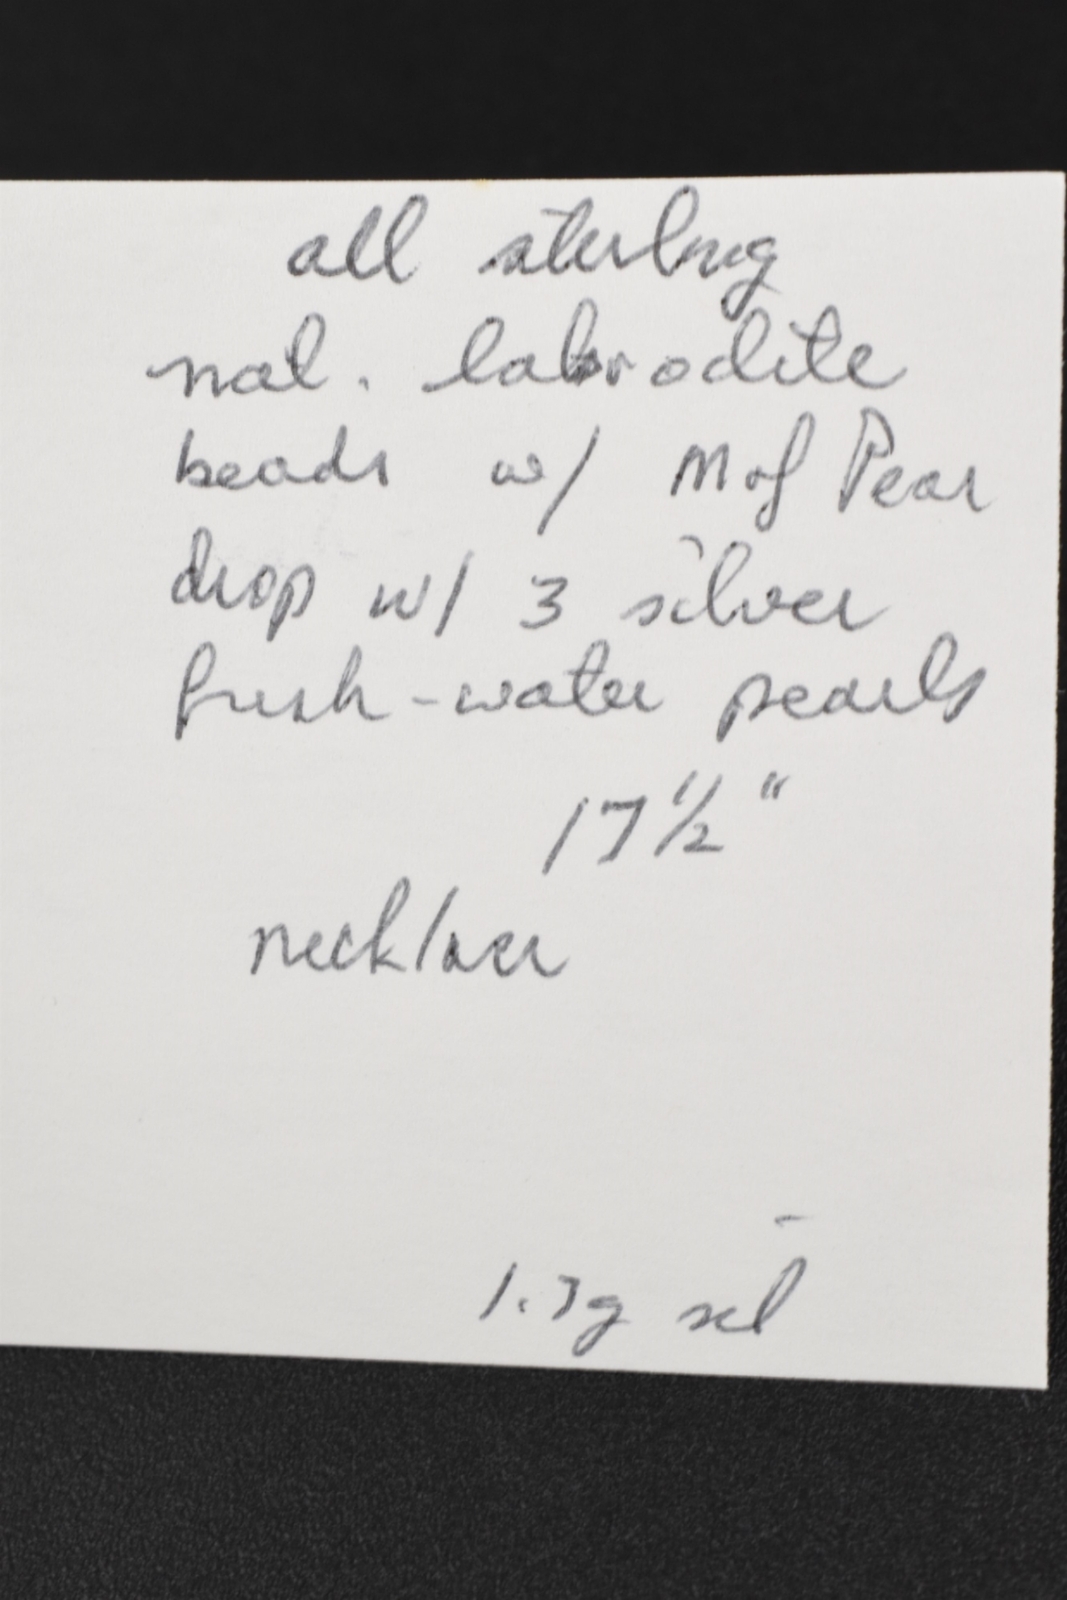 all sterling
nat. labrodite
beads w/ M of Pear
drop w/ 3 silver
fresh-water pearls
17 ½ "
necklace
1.7g sil